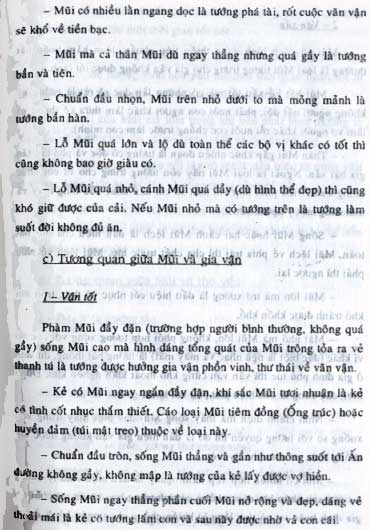 – Mũi có nhiều lằn ngang dọc là tướng phá tài, rốt cuộc vãn vận
sẽ khổ về tiền bạc.
– Mũi mà cả thân Mũi dù ngay thẳng nhưng quá gầy là tướng
bần và tiên.
– Chuẩn đầu nhọn, Mũi trên nhỏ dưới to mà mỏng mảnh là
tướng bần hàn.
– Lỗ Mũi quá lớn và lộ dù toàn thể các bộ vị khác có tốt thì
cũng không bao giờ giầu có.
– Lỗ Mũi quá nhỏ, cánh Mũi quá dầy (dù hình thể đẹp) thì cũng
khó giữ được của cải. Nếu Mũi nhỏ mà có tướng trên là tướng làm
suốt đời không đủ ăn.
c) Tương quan giữa Mũi và gia vận
I – Vận tốt
Phàm Mũi đầy đặn (trường hợp người bình thường, không quá
gầy) sống Mũi cao mà hình dáng tổng quát của Mũi trông tỏa ra vẻ
thanh tú là tướng được hưởng gia vận phồn vinh, thư thái về vãn vận.
– Kẻ có Mũi ngay ngắn đầy đặn, khí sắc Mũi tươi nhuận là kẻ
có tình cốt nhục thắm thiết. Các loại Mũi tiêm đồng (Ống trúc) hoặc
huyền đảm (túi mật treo) thuộc về loại này.
– Chuẩn đầu tròn, sống Mũi thẳng và gần như thông suốt tới Ấn
đường không gầy, không mập là tướng của kẻ lấy được vợ hiền.
– Sống Mũi ngay thẳng phần cuối Mũi nở rộng và đẹp, dáng vẻ
thoải mái là kẻ có tướng lắm con và sau này được nhờ vả con cái.